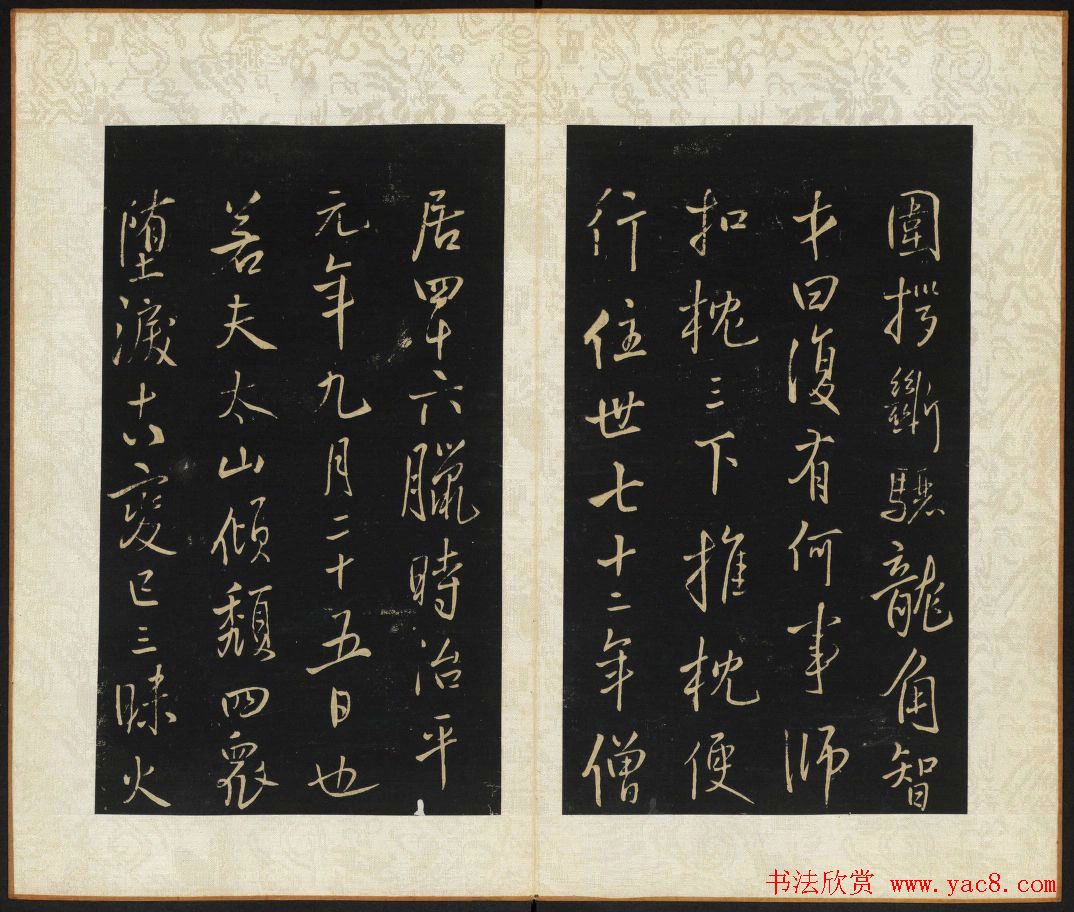 圍拶斷驪龍角智
才曰復有何事師
扣枕三下推枕便
行住世七十二年僧
居四十六臘時治平
元年九月二十五日也
若夫太山傾頽四衆
墮淚十八變已三昧火
书法欣赏 www.yac8.com